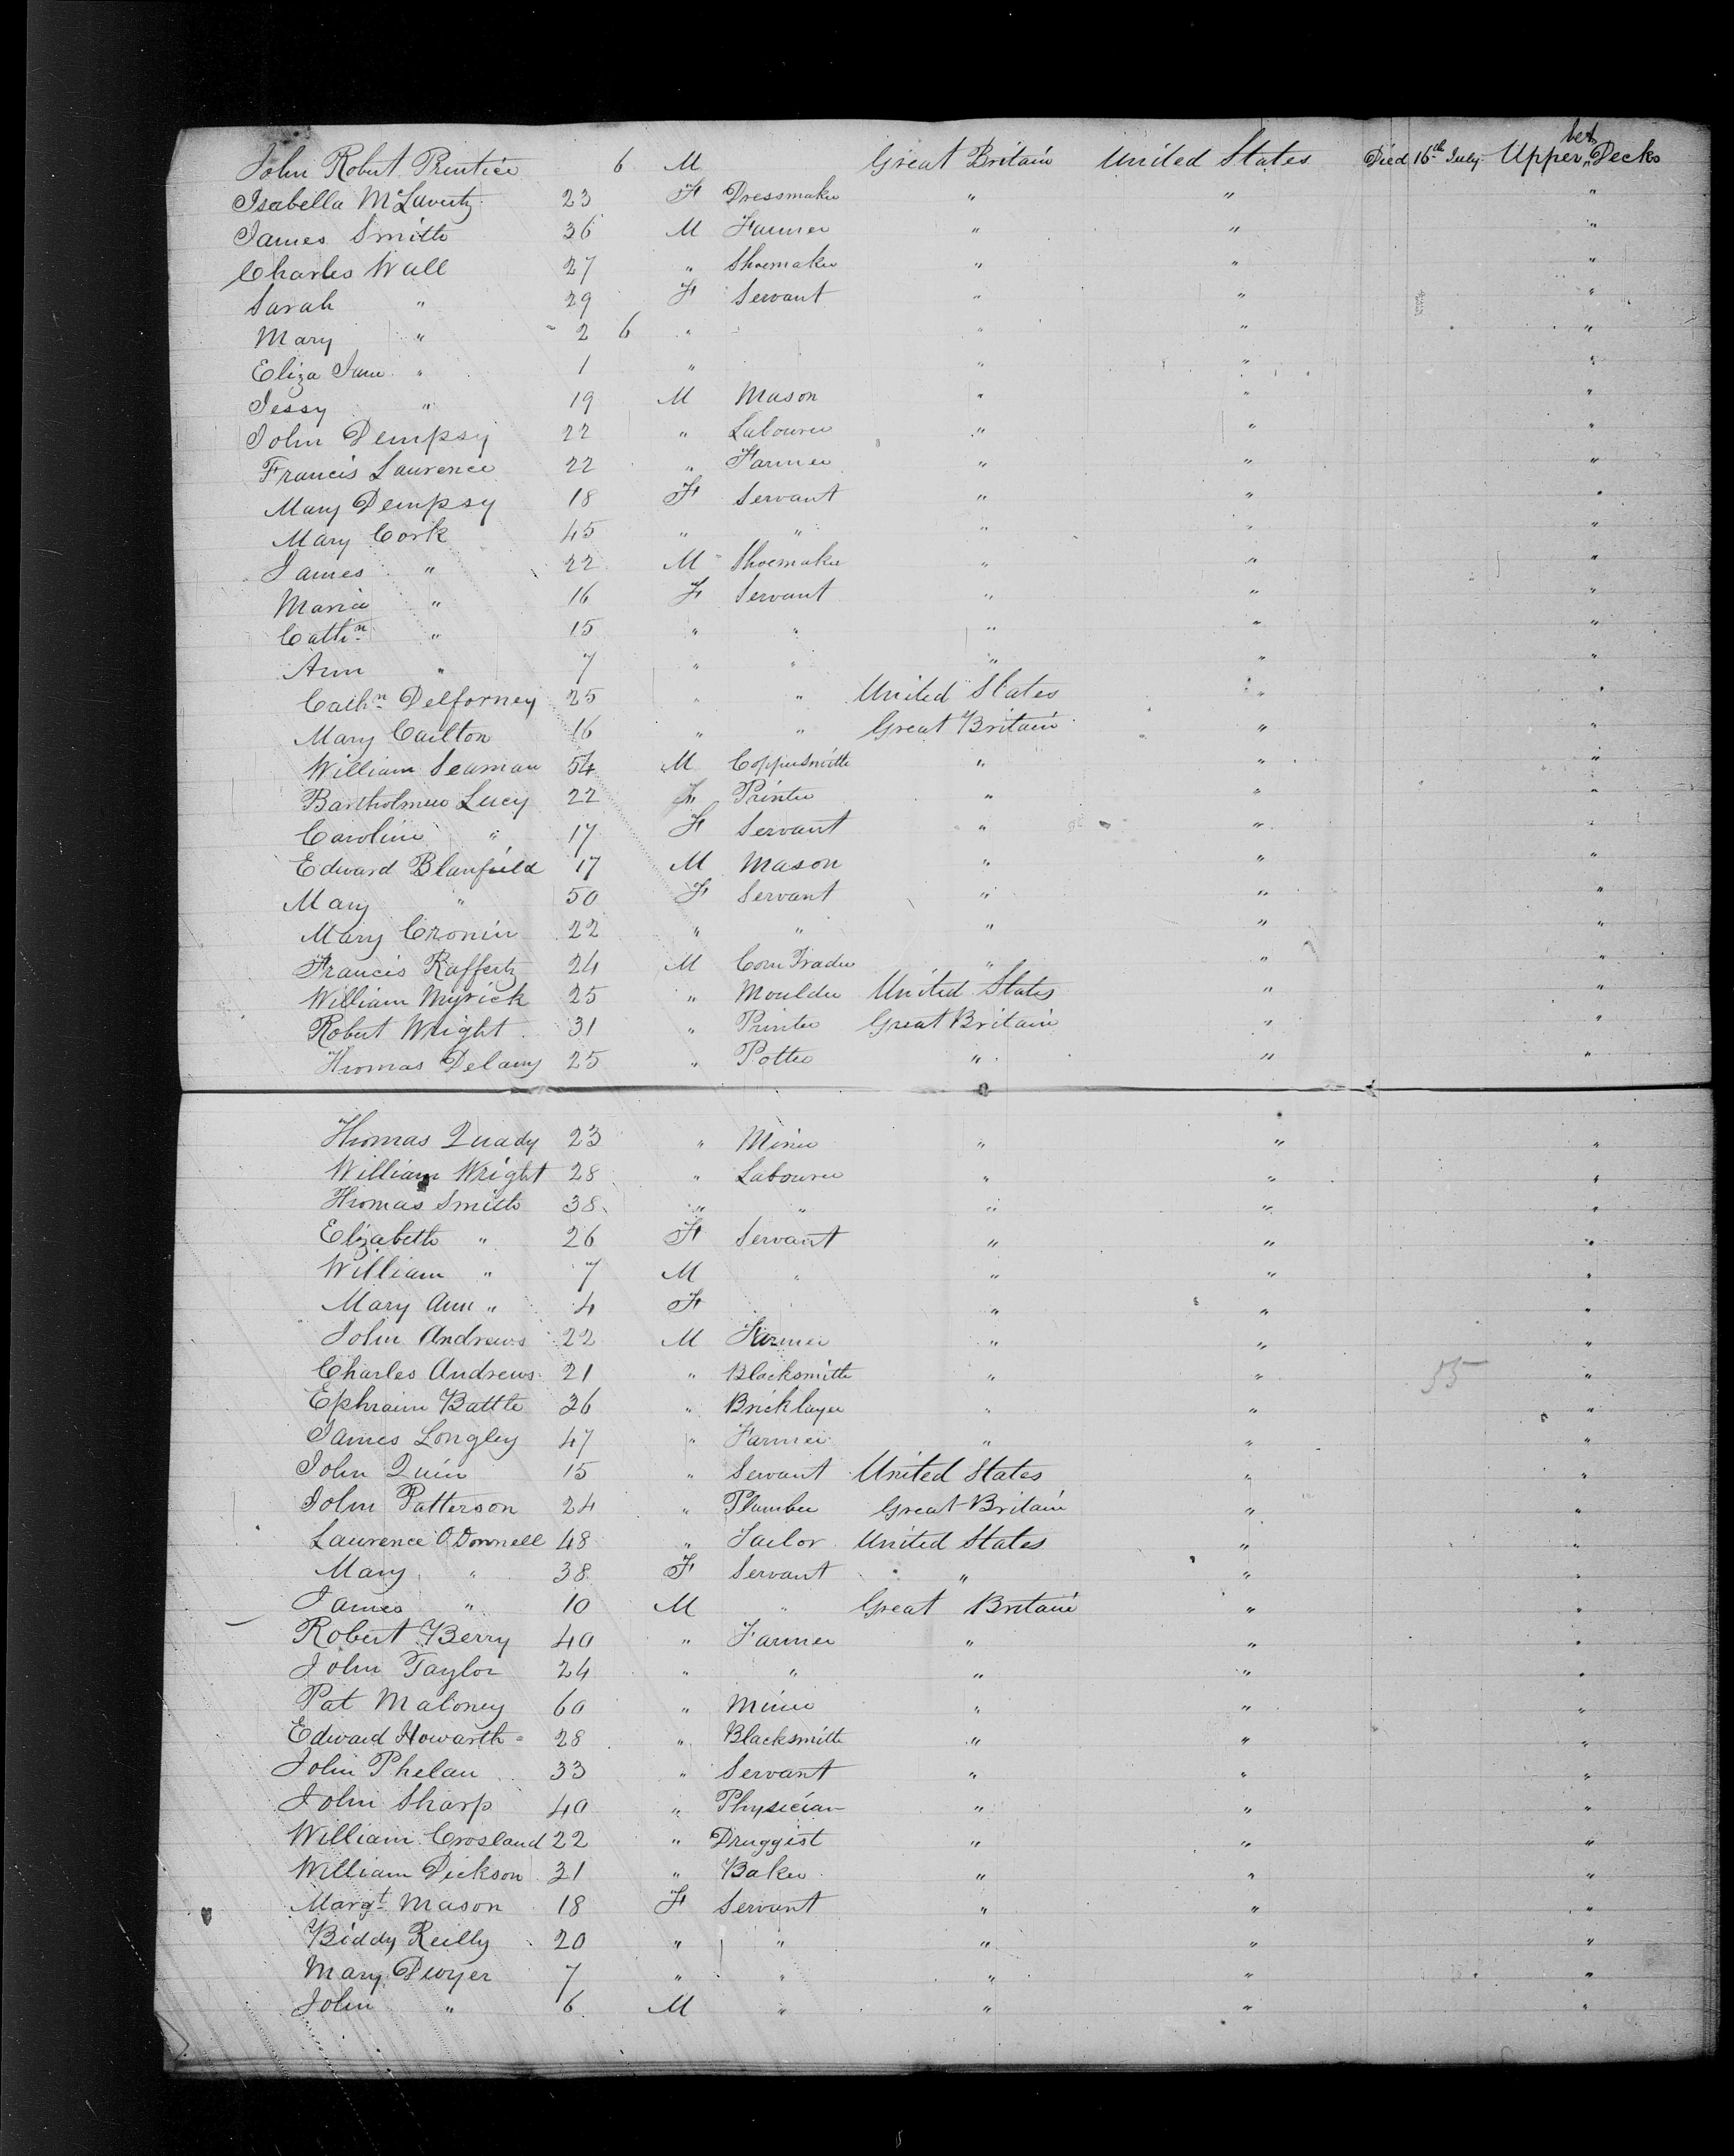 John Robert Prentice 6 M Great Britain United States Died 16th July Upper bet Decks
Isabella McLaverty 23 F Dressmaker " " "
James Smith 36 M Farmer " " "
Charles Wall 27 " Shoemaker " " "
Sarah " 29 F Servant " " "
Mary " 2 6 " " " "
Eliza Jane " 1 " " " "
Jessy " 19 M Mason " " "
John Dempsy 22 " Labourer " " "
Francis Laurence 22 " Farmer " " "
Mary Dempsy 18 F Servant " " "
Mary Cork 45 " " " " "
James " 22 M Shoemaker " " "
Maria " 16 F Servant " " "
Cathn " 15 " " " " "
Ann " 7 " " " " "
Cathn Delforney 25 " " United States " "
Mary Carlton 16 " " Great Britain " "
William Seaman 54 M Coppersmith " " "
Bartholmew Lucy 22 Printer " " "
Caroline " 17 F Servant " " "
Edward Blanfield 17 M Mason " " "
Mary " 50 F Servant " " "
Mary Cronin 22 " " " " "
Francis Rafferty 24 M Corn Trader " " "
William Myrick 25 " Moulder United States " "
Robert Wright 31 " Printer Great Britain " "
Thomas Delany 25 " Potter " " "
Thomas Quady 23 " Miner " " "
William Wright 28 " Labourer " " "
Thomas Smith 38 " " " " "
Elizabeth " 26 F Servant " " "
William " 7 M " " " "
Mary Ann " 4 F " " "
John Andrews 22 M Farmer " " "
Charles Andrews 21 " Blacksmith " " 55 "
Ephraim Battle 26 " Bricklayer " " "
James Longley 47 " Farmer " " "
John Quin 15 " Servant United States " "
John Patterson 24 " Plumber Great Britain " "
Laurence O'Donnell 48 " Tailor United States " "
Mary " 38 F Servant " " "
James " 10 M " Great Britain " "
Robert Berry 40 " Farmer " " "
John Taylor 24 " " " " "
Pat Maloney 60 " Miner " " "
Edward Howarth 28 " Blacksmith " " "
John Phelan 33 " Servant " " "
John Sharp 40 " Physician " " "
William Crosland 22 " Druggist " " "
William Dickson 31 " Baker " " "
Margt Mason 18 F Servant " " "
Biddy Reilly 20 " " " " "
Mary Dwyer 7 " " " " "
John " 6 M " " " "